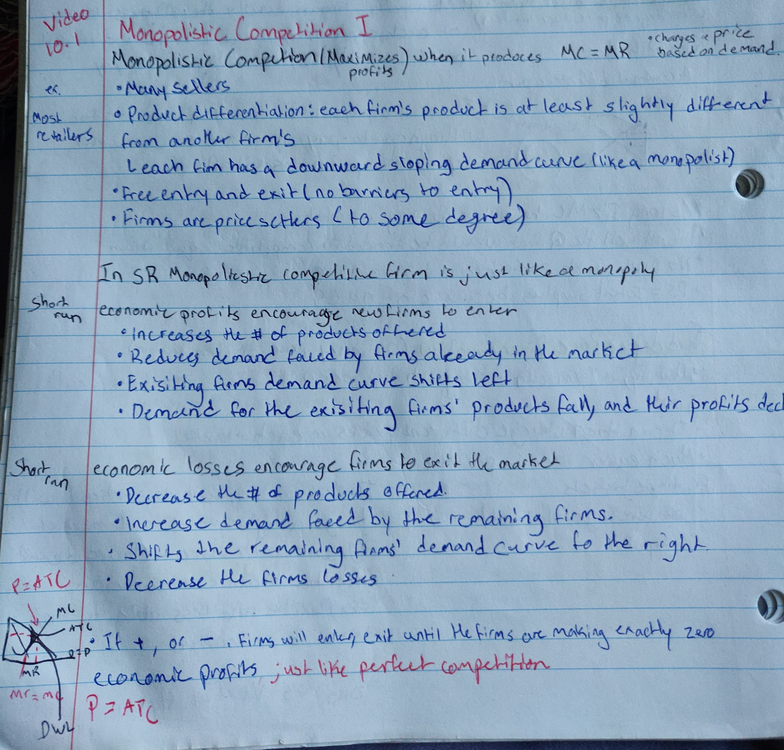 Video
10.1
Monopolistic Competition I
Monopolistic Competion (Maximizes) when it produces MC = MR
profits
• charges a price
based on demand.
ex.
Most
retailers
• Many sellers
• Product differentiation: each firm's product is at least slightly different
from another firm's
L each firm has a downward sloping demand curve (like a monopolist)
• Free entry and exit (no barriers to entry)
• Firms are price setters (to some degree)
In SR Monopolicstic competitive firm is just like a monopoly
Short
run
economic profits encourage new firms to enter
• Increases the # of products offered
• Reduces demand faced by firms already in the market
• Exisiting firms demand curve shifts left
• Demand for the exisiting firms' products fall, and their profits decl
Short
run
economic losses encourage firms to exit the market
• Decrease the # of products offered.
• Increase demand faced by the remaining firms.
• Shifts the remaining firms' demand curve to the right
• Decrease the firms losses
P=ATC
MC
ATC
MR
Mr = mc
DWL
• If +, or - , Firms will enter, exit until the firms are making exactly zero
economic profits just like perfect competition
P = ATC